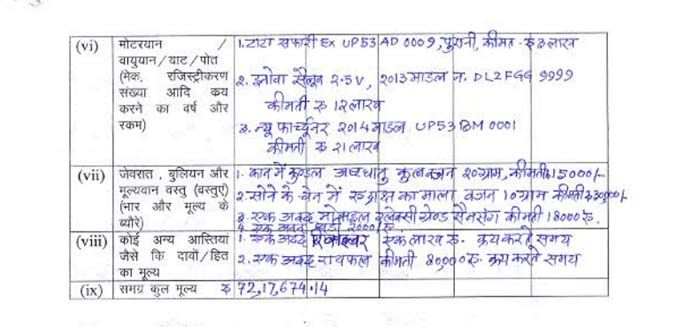 (vi) मोटरयान / 1. टाटा सफारी Ex UP53 AD 0009, पुरानी, कीमत - रु 3 लाख
वायुयान / याट / पोत
(मेक, रजिस्ट्रीकरण 2. इनोवा 2.5V, 2013 माडल न. DL2FGG 9999
संख्या आदि क्रय कीमती रु 12 लाख
करने का वर्ष और
रकम) 3. न्यू फार्च्यूनर 2014 माडल UP53 BM 0001
कीमती रु 21 लाख
(vii) जेवरात, बुलियन और 1. कान में कुण्डल अष्टधातु कुल वजन 20 ग्राम, कीमती रु 15000/-
मूल्यवान वस्तु (वस्तुएं) 2. सोने के चेन में रुद्राक्ष का माला वजन 10 ग्राम कीमती रु 30000/-
(भार और मूल्य के
ब्यौरे) 3. एक अदद मोबाइल गैलेक्सी ग्रेण्ड सैमसंग कीमती 18000 रु.
4. एक अदद घड़ी 2000/- रु.
(viii) कोई अन्य आस्तियां 1. एक अदद रिवाल्वर एक लाख रु. क्रय करते समय
जैसे कि दावों/हित 2. एक अदद रायफल कीमती 80,000 रु. क्रय करते समय
का मूल्य
(ix) समग्र कुल मूल्य रु 72,17,674.14